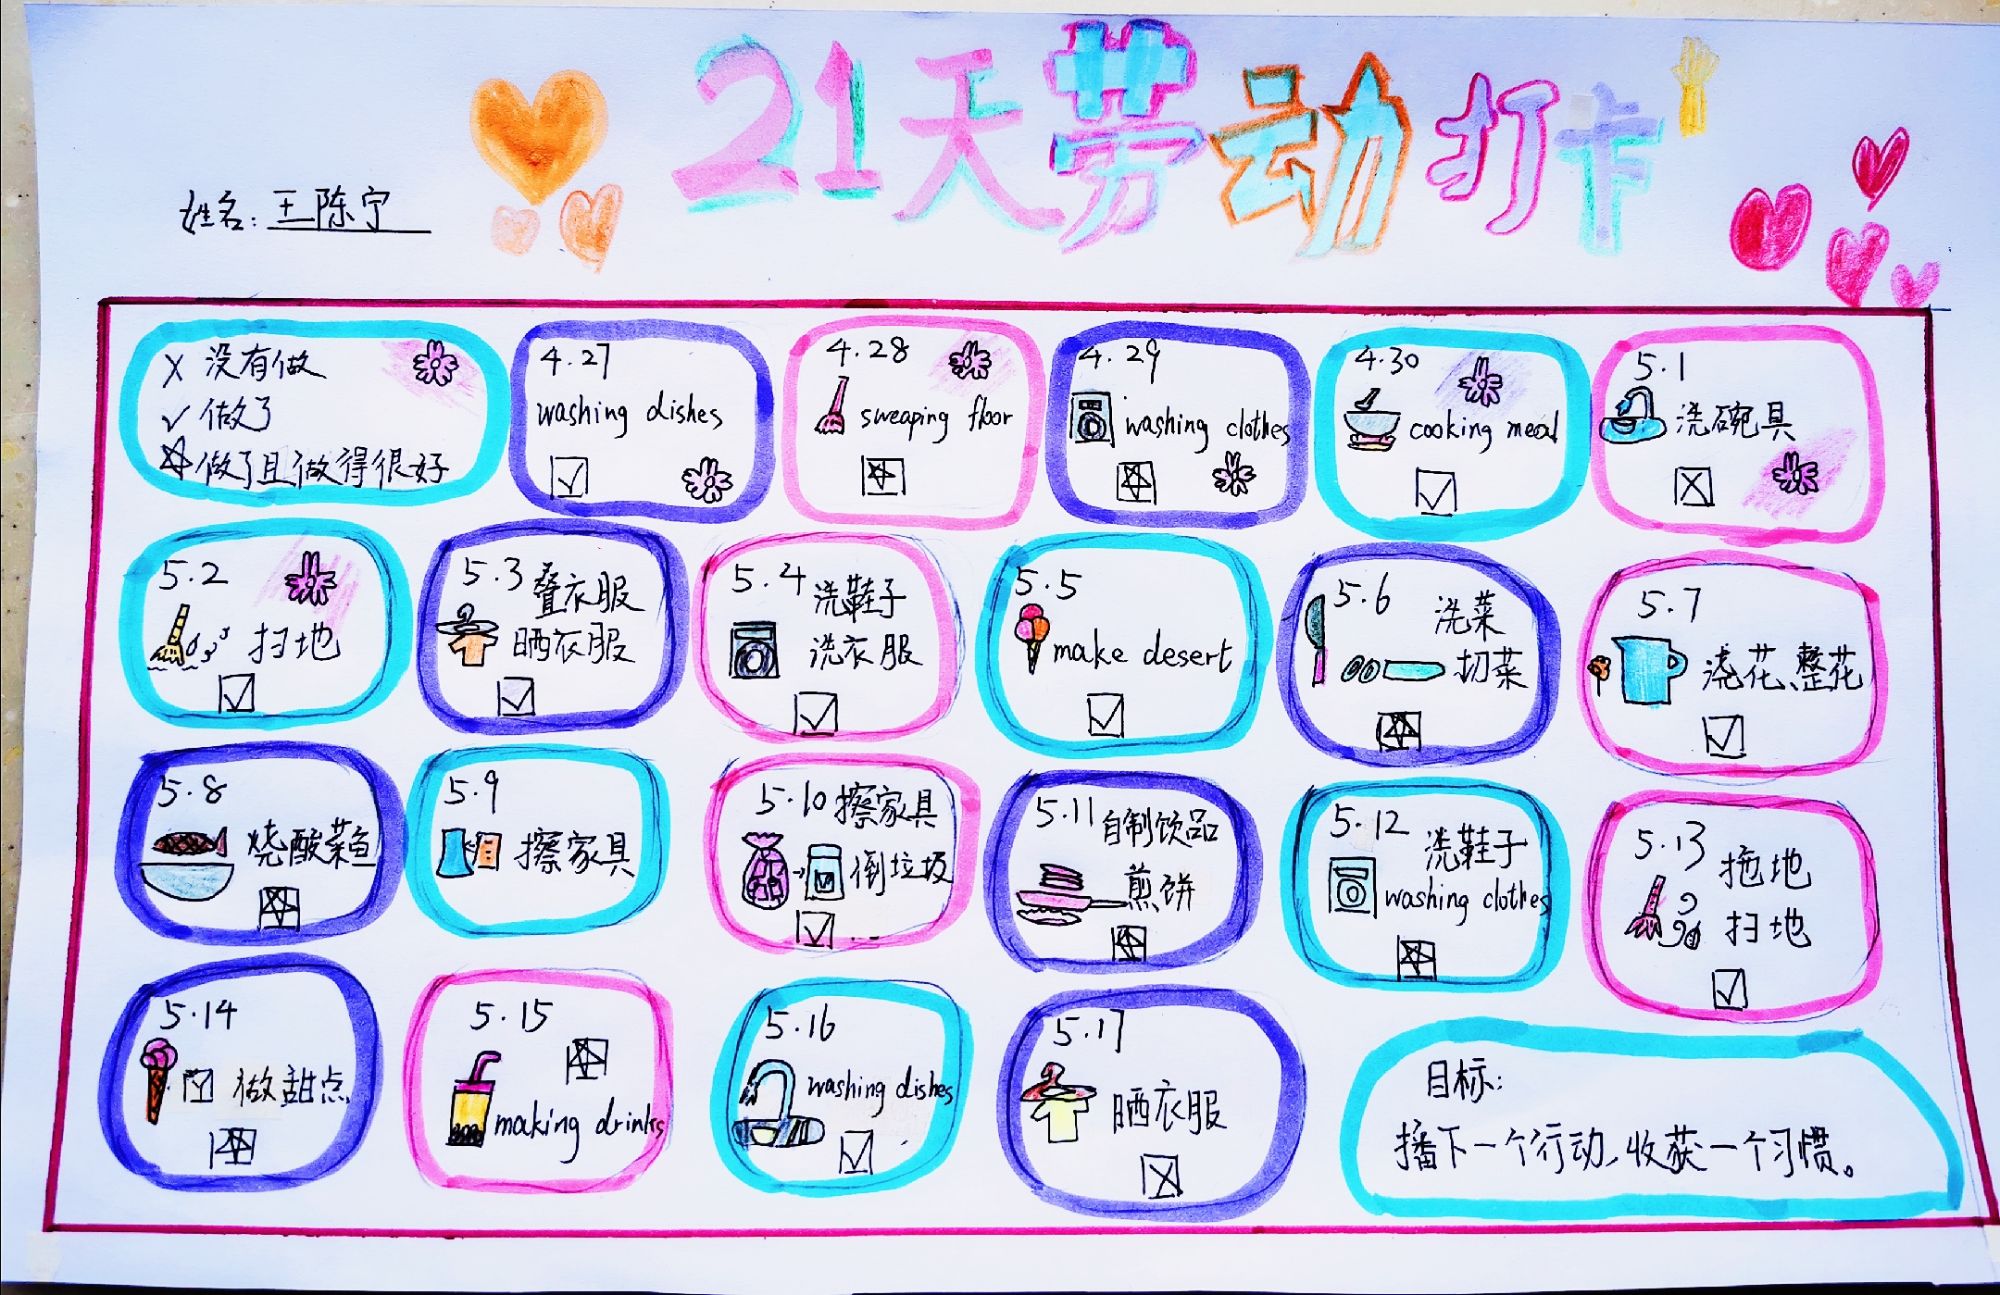 21天劳动打卡
姓名：王陈宁
X 没有做
✓ 做了
☆ 做了且做得很好
4.27
washing dishes
4.28
sweaping floor
4.29
washing clothes
4.30
cooking meal
5.1
洗碗具
5.2
扫地
5.3 叠衣服
晒衣服
5.4 洗鞋子
洗衣服
5.5
make desert
5.6 洗菜
切菜
5.7
浇花、整花
5.8
烧酸菜鱼
5.9
擦家具
5.10 擦家具
倒垃圾
5.11 自制饮品
煎饼
5.12 洗鞋子
washing clothes
5.13 拖地
扫地
5.14
做甜点
5.15
making drinks
5.16
washing dishes
5.17
晒衣服
目标：
播下一个行动，收获一个习惯。